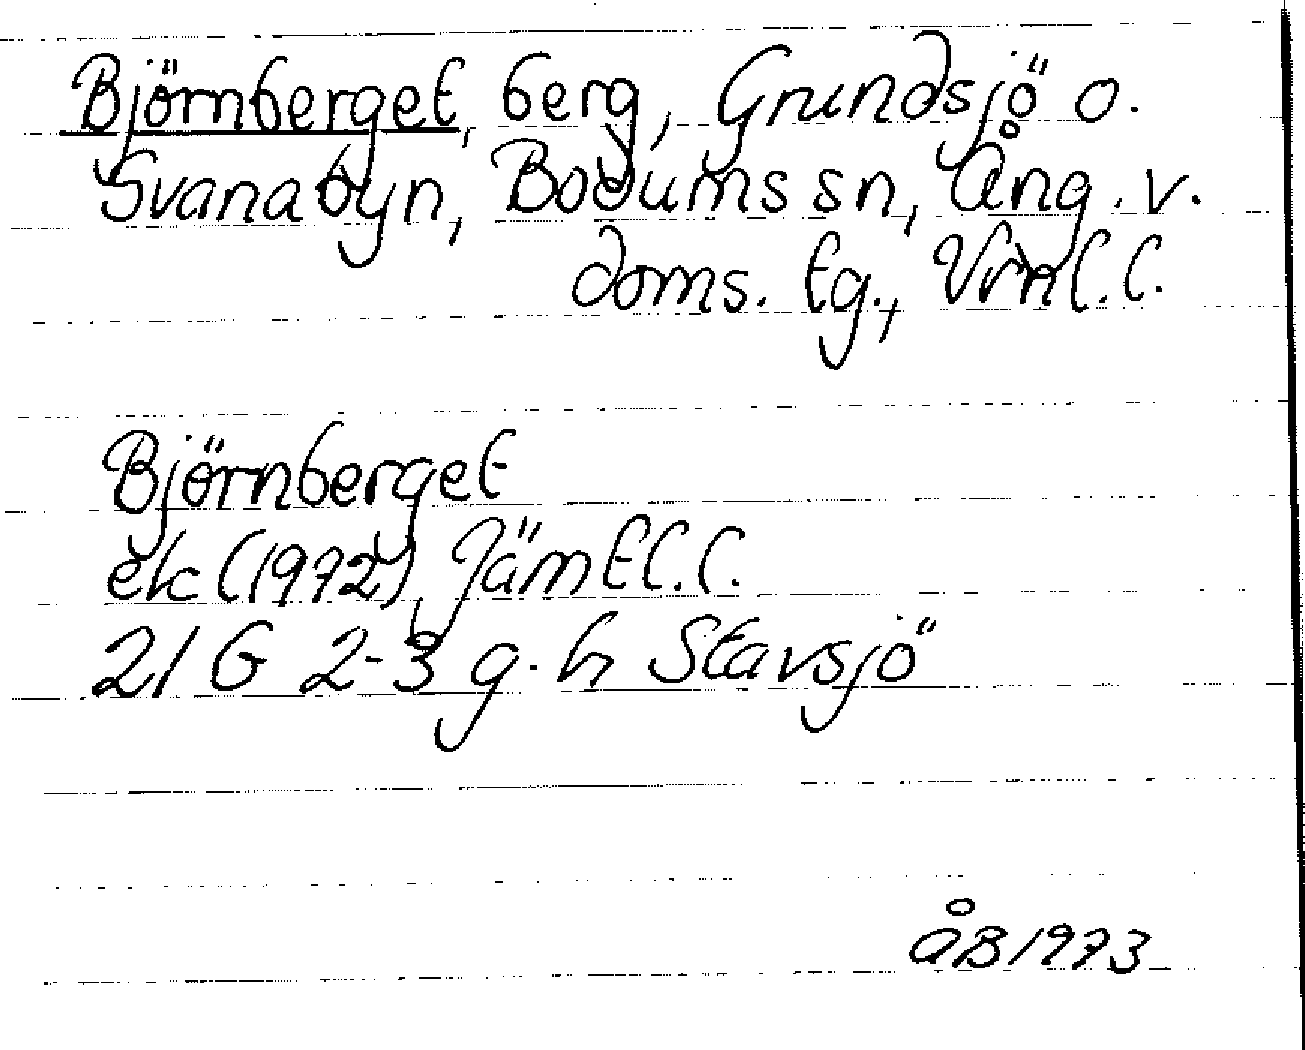 Björnberget, berg, Grundsjö o.
Svanabyn, Bodums sn, Ång. v.
doms. tg., Vrnl. l.
Björnberget
ek (1972), Jämtl. l.
21 G 2-3 g-h Stavsjö
ÅB 1973